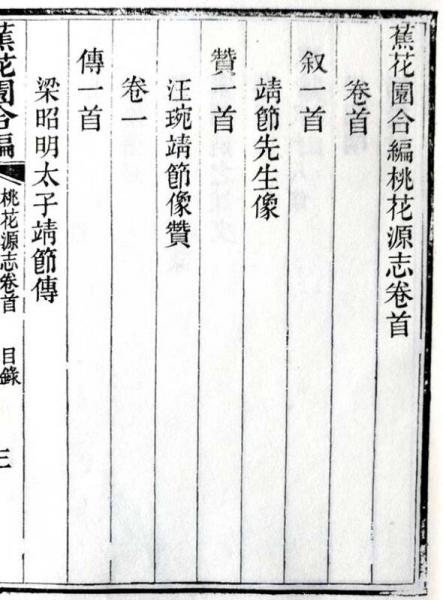 蕉花園合編桃花源志卷首
卷首
叙一首
靖節先生像
贊一首
汪琬靖節像贊
卷一
傳一首
梁昭明太子靖節傳
蕉花園合編
桃花源志卷首
目錄
三